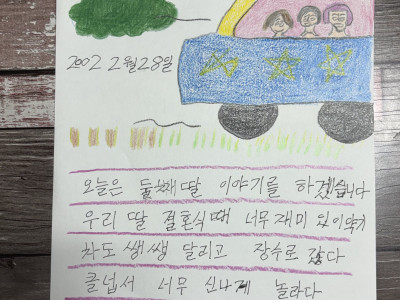 2002 2월28일
오늘은 둘째딸 이야기를 하겠습니다
우리 딸 결혼식때 너무재미 있이약기
차도 쌩쌩 달리고 장수로 갔다
클넙서 너무 신나게 놀라다